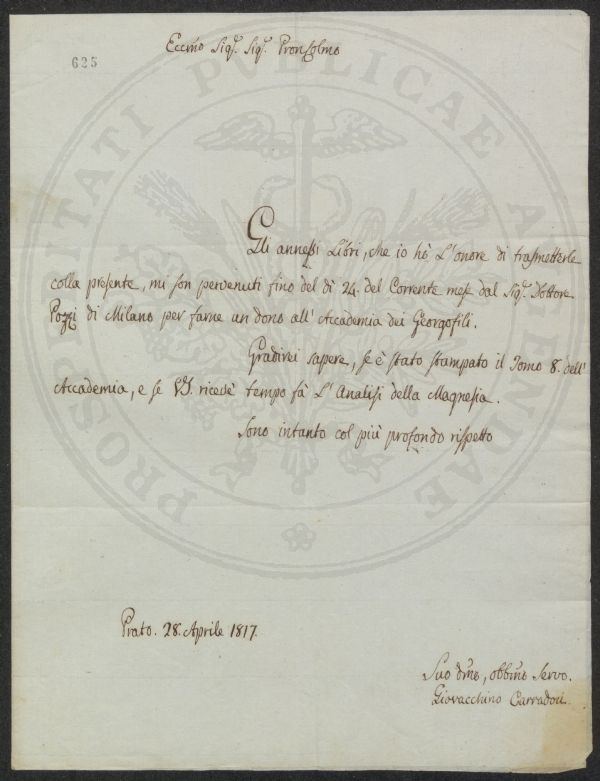 Eccmo Sigr. Sigr. Pron Colmo
625
PROSPERITATI PUBLICAE AUGENDAE
Gli annessi Libri, che io hò L'onore di trasmetterle
colla presente, mi son pervenuti fino del dì 24. del Corrente mese dal Sigr. Dottore
Pozzi di Milano per farne un dono all' Accademia dei Georgofili.
Gradirei sapere, se è stato stampato il Tomo 8. dell'
Accademia, e se VS. ricevè tempo fà L' Analisi della Magnesia.
Sono intanto col più profondo rispetto
Prato. 28. Aprile 1817.
Suo dmo, obbmo Servo.
Giovacchino Carradori